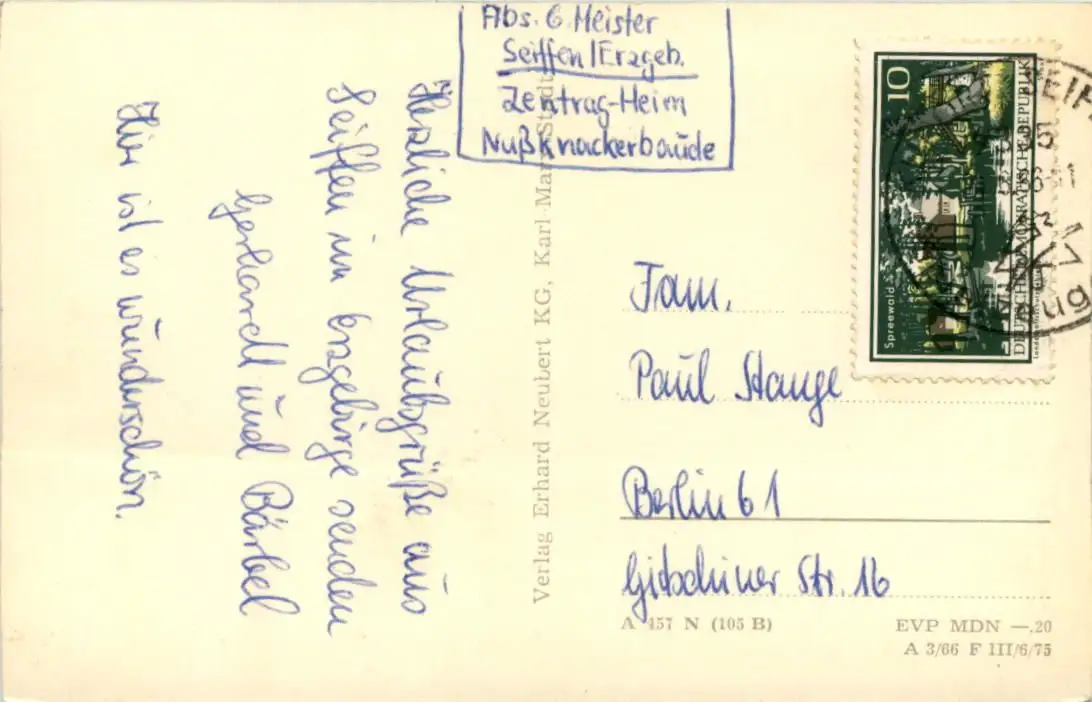 Abs. G. Meister
Seiffen/Erzgeb.
Zentrag-Heim
Nußknackerbaude
Herzliche Urlaubsgrüße aus
Seiffen im Erzgebirge senden
Gerhard und Bärbel
Hier ist es wunderschön.
Verlag Erhard Neubert KG, Karl-Marx-Stadt
10
Spreewald
DEUTSCHE DEMOKRATISCHE REPUBLIK
Fam.
Paul Stange
Berlin 61
Gitschiner Str. 16
A 457 N (105 B)
EVP MDN —.20
A 3/66 F III/6/75